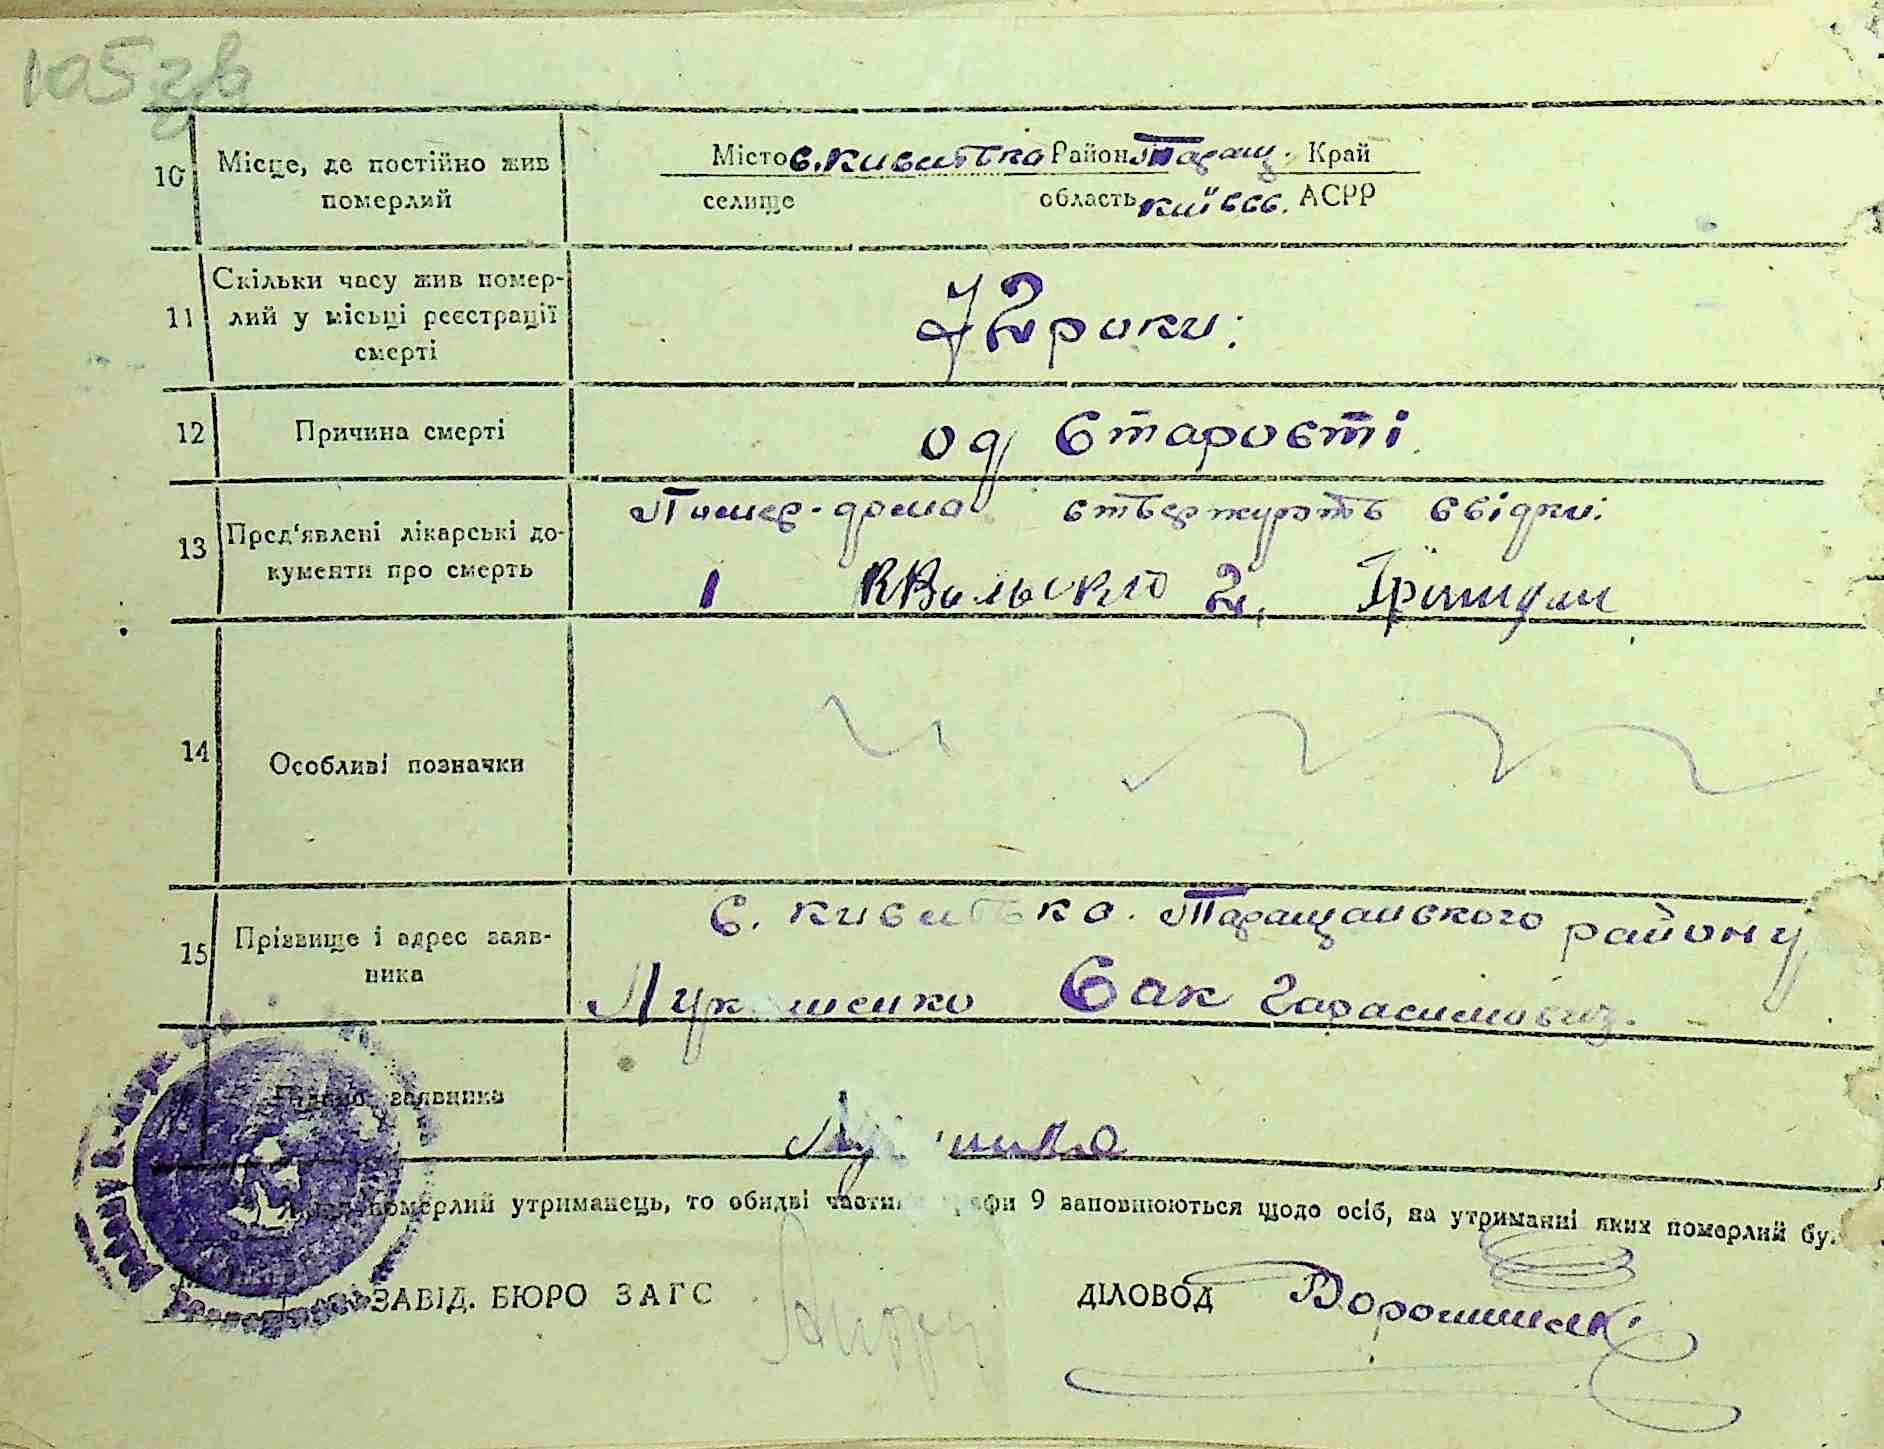 105 зв
10 Місце, де постійно жив померлий
Місто с. Кившовка Район Таращ. Край
селище область Київсв. АСРР
11 Скільки часу жив помер-
лий у місьці реєстрації
смерті
72 роки.
12 Причина смерті
од Старості
13 Пред'явлені лікарські до-
кументи про смерть
Помер-дома ствержують свідки:
1 2.
14 Особливі позначки
15 Прізвище і адрес заяв-
ника
с. Таращанского району
Лукашенко Сак Гарасимович.
заявника
померлий утриманець, то обидві части графи 9 заповнюються щодо осіб, на утриманні яких померлий бу
ЗАВІД. БЮРО ЗАГС
ДІЛОВОД